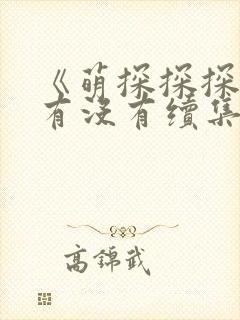 《萌探探探
有没有续集
高锦武